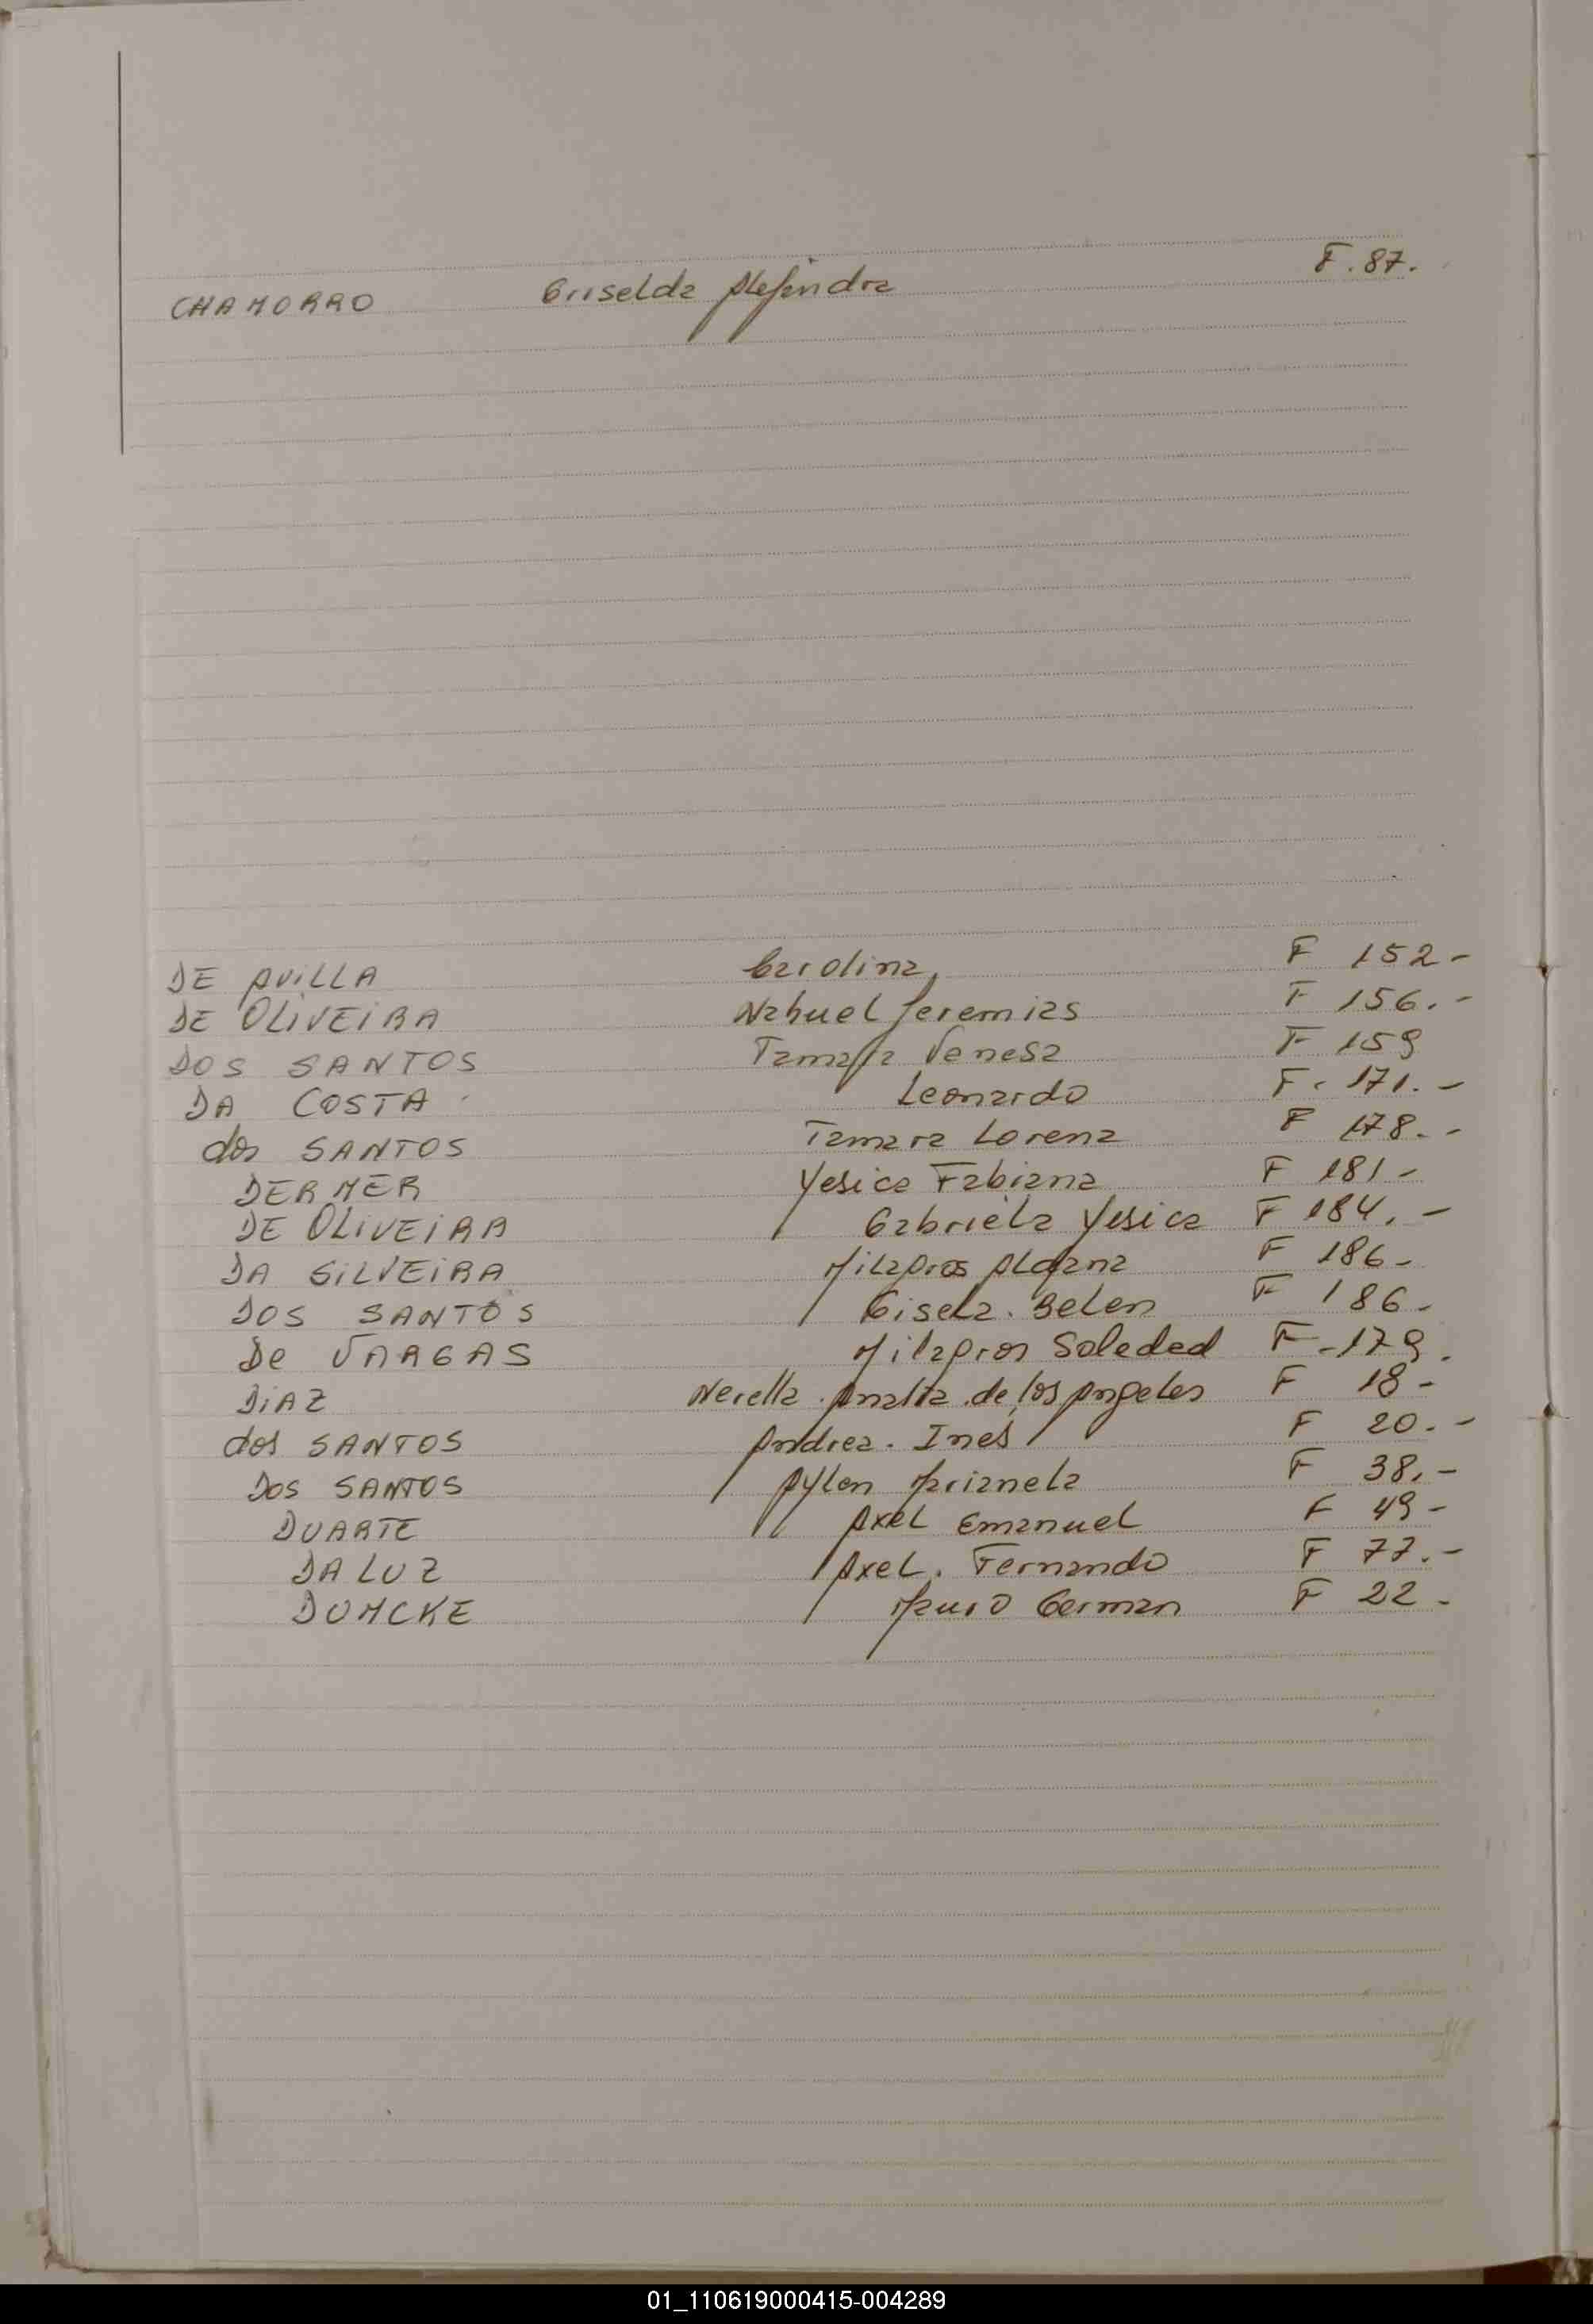 CHAMORRO Griselda Alejandra F. 87.
DE AVILLA Carolina F 152-
DE OLIVEIRA Nahuel Jeremias F 156.-
DOS SANTOS Tamara Vanesa F 159
DA COSTA Leonardo F. 171.-
dos SANTOS Tamara Lorena F 178.-
DERMER Yesica Fabiana F 181-
DE OLIVEIRA Gabriela Yesica F 184.-
DA SILVEIRA Milagros F 186-
DOS SANTOS Gisela. Belen F 186-
De VARGAS Milagros Soledad F-179.
DIAZ Nerella. Analia de los Angeles F 18-
dos SANTOS Andrea. Ines F 20.-
DOS SANTOS Aylen Marianela F 38.-
DUARTE Axel Emanuel F 49-
DA LUZ Axel. Fernando F 77.-
DUMCKE Mauro German F 22-
01_110619000415-004289